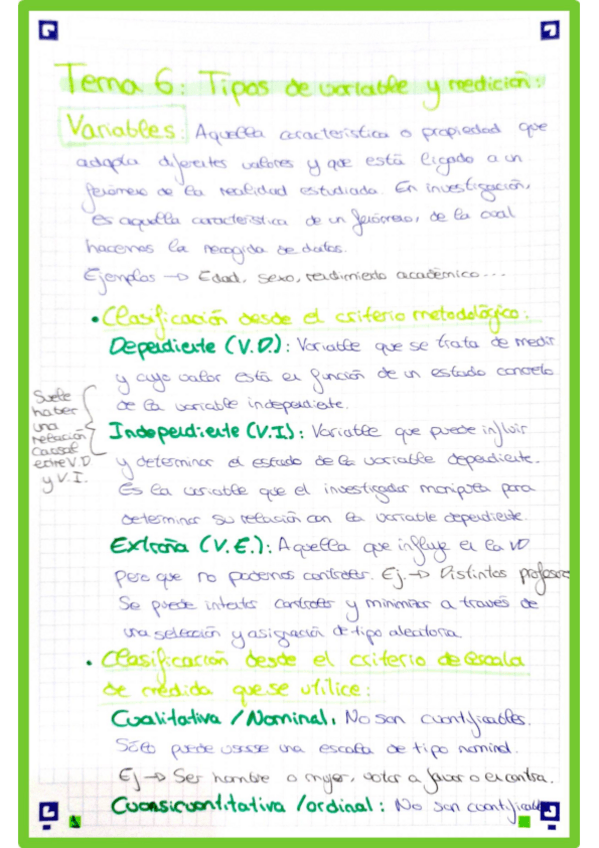 Tema 6: Tipos de variable y medición:
Variables: Aquella característica o propiedad que
adopta diferentes valores y que está ligado a un
fenómeno de la realidad estudiada. En investigación,
es aquella característica de un fenómeno, de la cual
hacemos la recogida de datos.
Ejemplos → Edad, sexo, rendimiento académico...
• Clasificación desde el criterio metodológico:
Dependiente (V.D.): Variable que se trata de medir
y cuyo valor está en función de un estado concreto
de la variable independiente.
Suele
haber
una
relación
causal
entre V.D
y V.I.
Independiente (V.I): Variable que puede influir
y determinar el estado de la variable dependiente.
Es la variable que el investigador manipula para
determinar su relación con la variable dependiente.
Extraña (V.E.): Aquella que influye en la VD
pero que no podemos controlar. Ej.→ Distintos profesores
Se puede intentar controlar y minimizar a través de
una selección y asignación de tipo aleatoria.
• Clasificación desde el criterio de escala
de medida que se utilice:
Cualitativa / Nominal: No son cuantificables.
Sólo puede usarse una escala de tipo nominal.
Ej → Ser hombre o mujer, votar a favor o en contra.
Cuasicuantitativa / ordinal: No son cuantificable